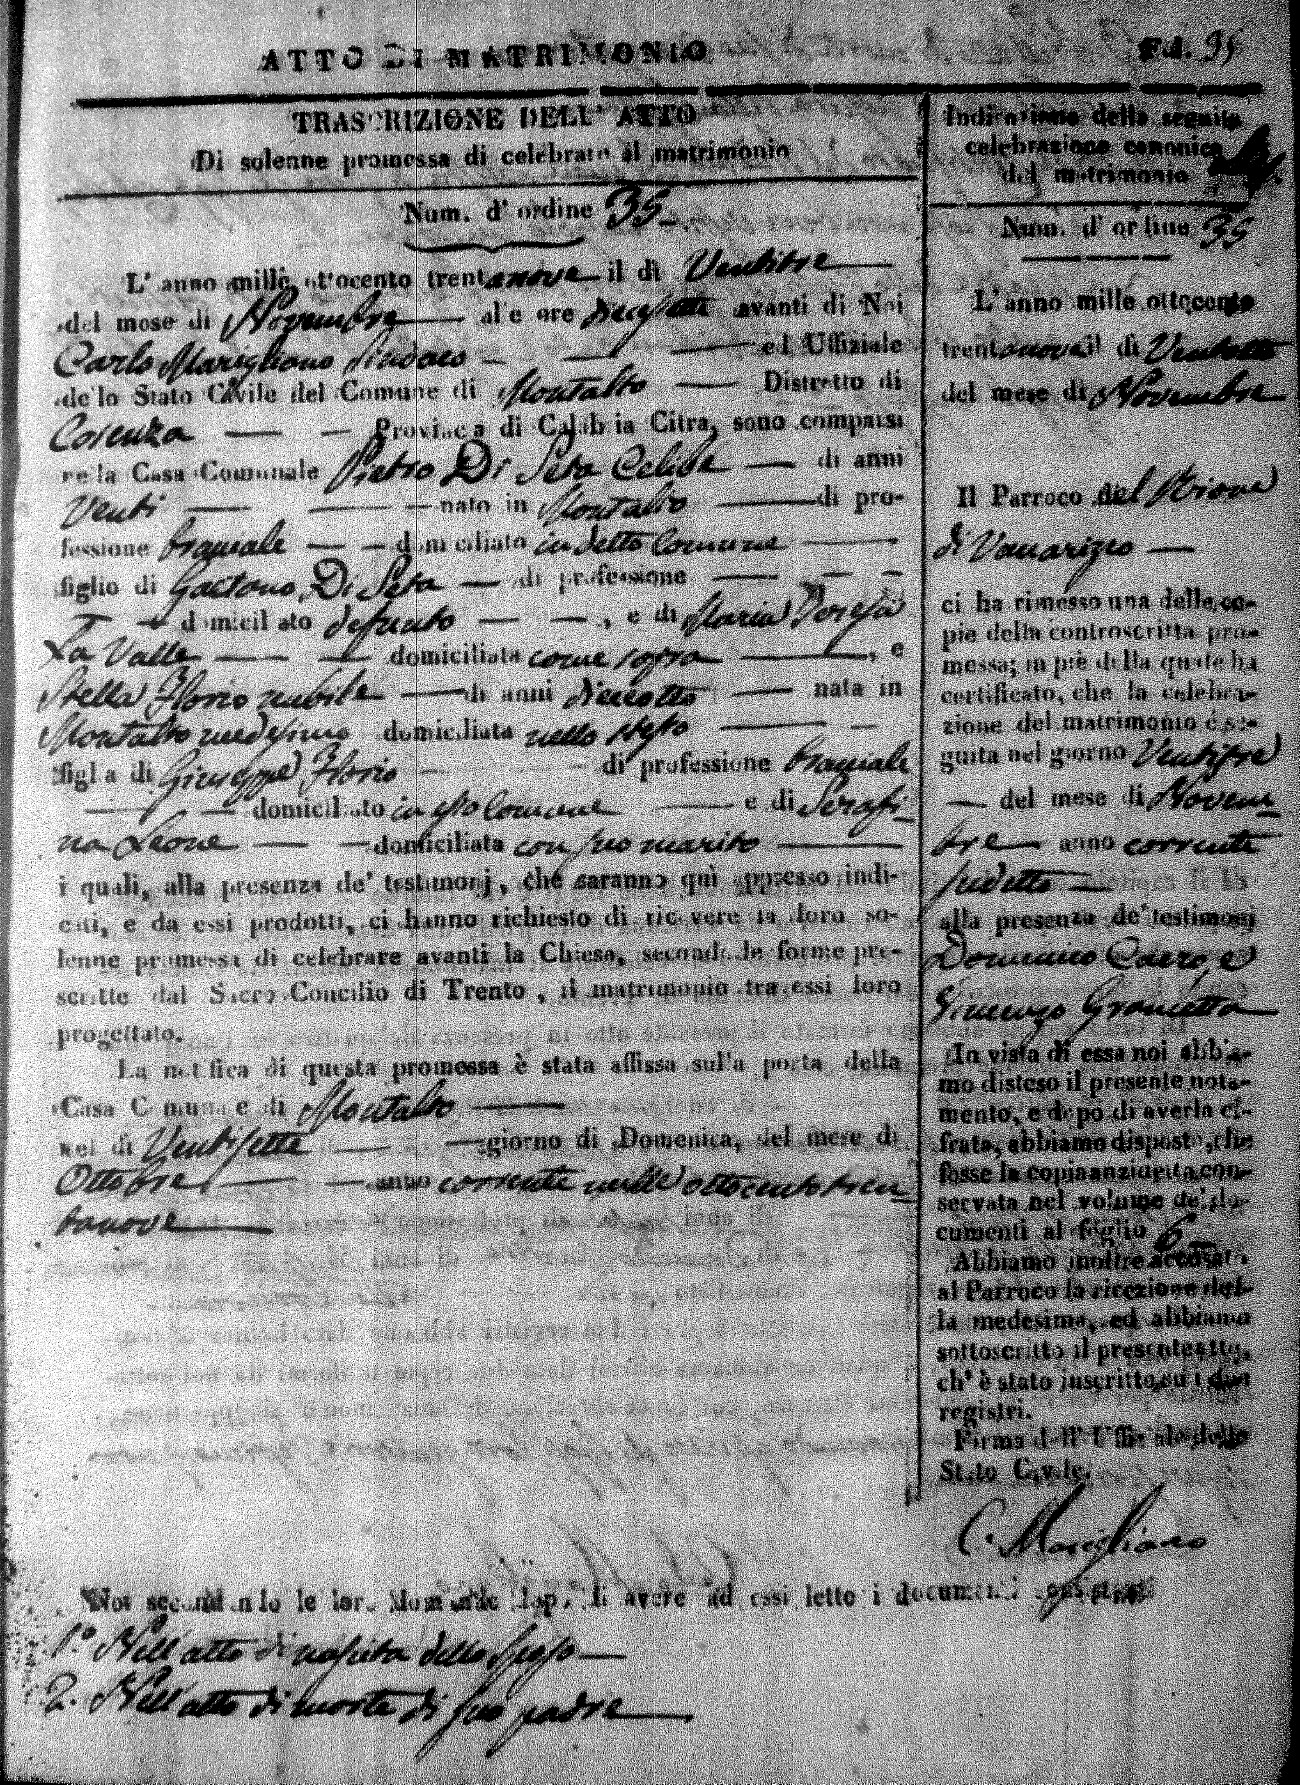 ATTO DI MATRIMONIO
Fd. 35
TRASCRIZIONE DELL' ATTO
Di solenne promessa di celebrare il matrimonio
Num. d' ordine 35
L' anno mille ottocento trentanove il dì Ventitre
del mese di Novembre alle ore diecisette avanti di Noi
Carlo Marigliano Sindaco ed Uffiziale
dello Stato Civile del Comune di Montalto Distretto di
Cosenza Provincia di Calabria Citra, sono comparsi
nella Casa Comunale Pietro Di Seta Celibe di anni
Venti nato in Montalto di pro-
fessione bracciale domiciliato in detto Comune
figlio di Gaetano Di Seta di professione
domiciliato defunto , e di Maria Teresa
La Valle domiciliata come sopra , e
Stella Florio nubile di anni dieciotto nata in
Montalto medesimo domiciliata nello stesso
figlia di Giuseppe Florio di professione bracciale
domiciliato in esso Comune e di Serafi-
na Leone domiciliata con suo marito
i quali, alla presenza de' testimonj, che saranno quì appresso indi-
cati, e da essi prodotti, ci hanno richiesto di ricevere la loro so-
lenne promessa di celebrare avanti la Chiesa, secondo le forme pre-
scritte dal Sacro Concilio di Trento, il matrimonio tra essi loro
progettato.
La notifica di questa promessa è stata affissa sulla porta della
Casa Comunale di Montalto
nel dì Ventisette giorno di Domenica, del mese di
Ottobre anno corrente mille ottocento tren-
tanove
Indicazione della seguita
celebrazione canonica
del matrimonio
Num. d' ordine 35
L' anno mille ottocento
trentanove il dì
del mese di Novembre
Il Parroco del Rione
di
ci ha rimesso una delle co-
pie della controscritta pro-
messa; in piè della quale ha
certificato, che la celebra-
zione del matrimonio è se-
guita nel giorno Ventitre
del mese di Novem-
bre anno corrente
sudetto
alla presenza de' testimonj
Domenico e
Vincenzo
In vista di essa noi abbia-
mo disteso il presente nota-
mento, e dopo di averla ci-
frata, abbiamo disposto, che
fosse la copia anzidetta con-
servata nel volume de' do-
cumenti al foglio 6
Abbiamo inoltre accusato
al Parroco la ricezione del-
la medesima, ed abbiamo
sottoscritto il presente atto,
ch' è stato inscritto su i due
registri.
Firma dell' Uffiziale dello
Stato Civile.
C. Marigliano
Noi secondando le loro domande dopo di avere ad essi letto i documenti
1.º Nell' atto di nascita dello sposo
2. Nell' atto di morte di suo padre